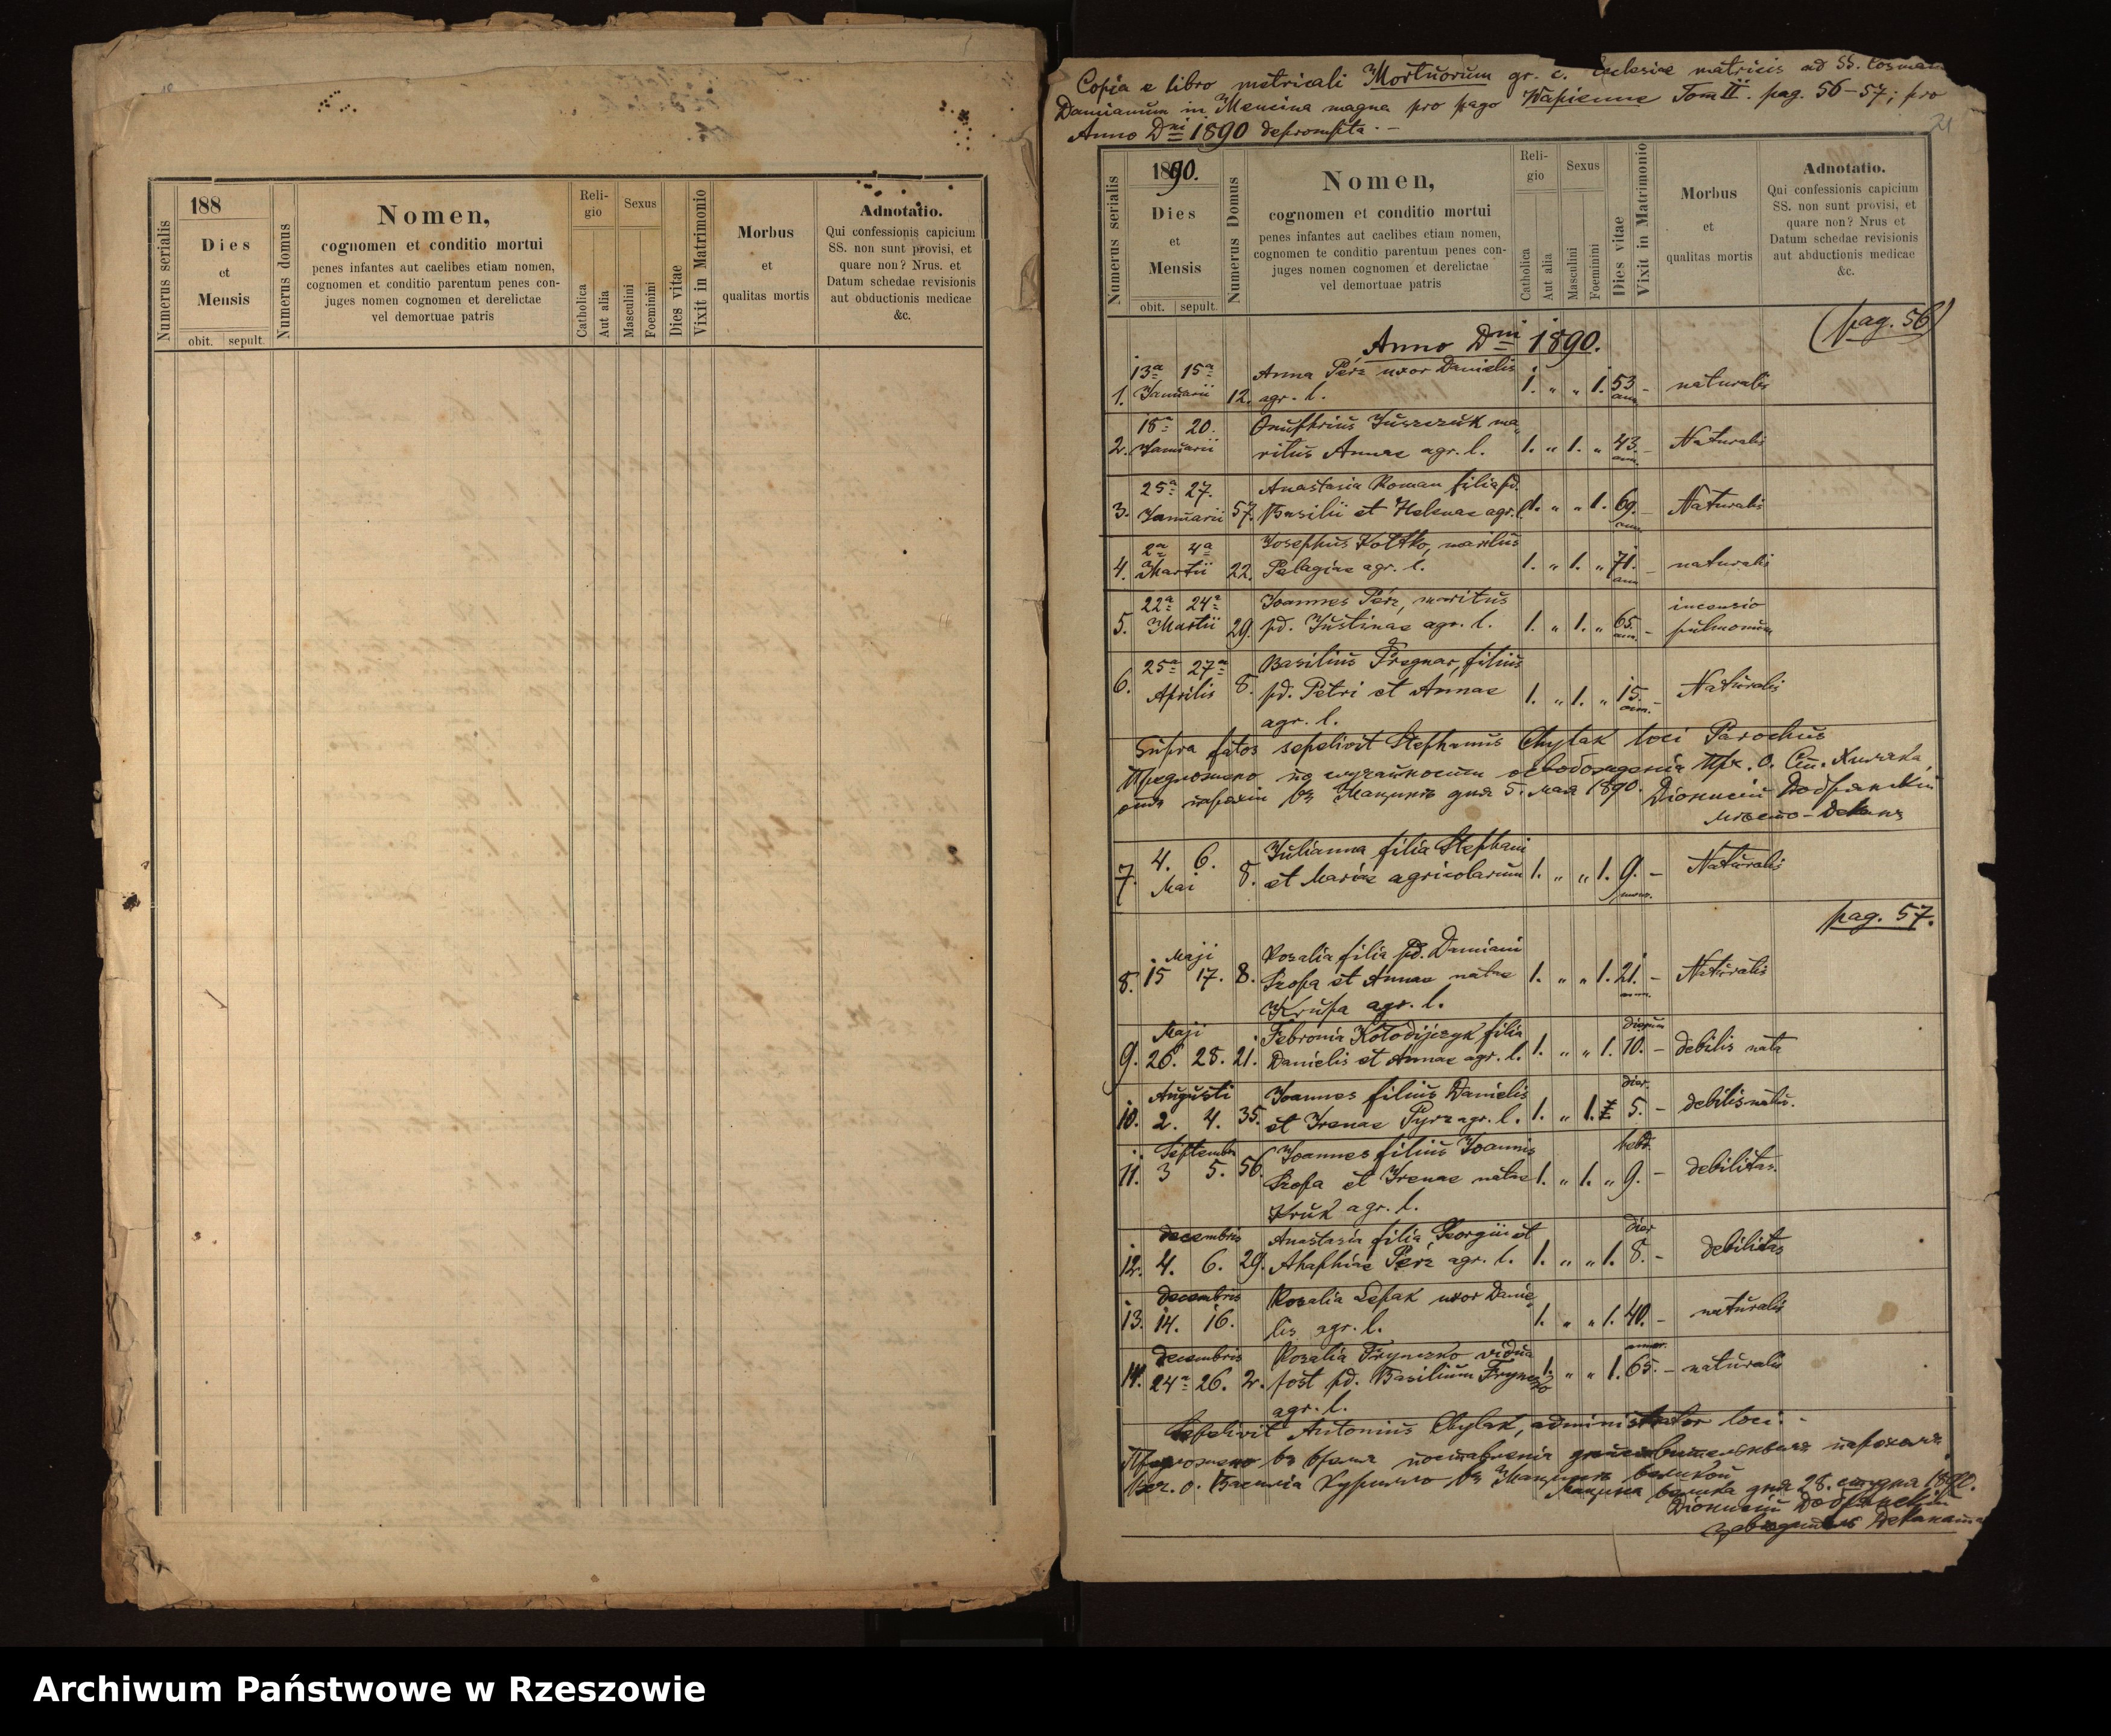 188
Numerus serialis
Dies
et
Mensis
obit. sepult.
Numerus domus
Nomen,
cognomen et conditio mortui
penes infantes aut caelibes etiam nomen,
cognomen et conditio parentum penes con-
juges nomen cognomen et derelictae
vel demortuae patris
Reli-
gio
Catholica
Aut alia
Sexus
Masculini
Foeminini
Dies vitae
Vixit in Matrimonio
Morbus
et
qualitas mortis
Adnotatio.
Qui confessionis capicium
SS. non sunt provisi, et
quare non? Nrus. et
Datum schedae revisionis
aut obductionis medicae
&c.
Copia e libro metricali Mortuorum gr. c. Ecclesiae matricis ad SS. Cosmam
Damianum in Mencina magna pro pago Wapienne Tom II. pag. 56-57; pro
Anno Dni 1890 deprompta. -
21
1890.
Numerus serialis
Dies
et
Mensis
obit. sepult.
Numerus Domus
Nomen,
cognomen et conditio mortui
penes infantes aut caelibes etiam nomen,
cognomen te conditio parentum penes con-
juges nomen cognomen et derelictae
vel demortuae patris
Reli-
gio
Catholica
Aut alia
Sexus
Masculini
Foeminini
Dies vitae
Vixit in Matrimonio
Morbus
et
qualitas mortis
Adnotatio.
Qui confessionis capicium
SS. non sunt provisi, et
quare non? Nrus et
Datum schedae revisionis
aut abductionis medicae
&c.
(pag. 56)
Anno Dni 1890.
13a 15a Anna Perz uxor Danielis
1. Januarii 12. agr. l. 1. " " 1. 53 ann. - naturalis
18a 20. Onufhrius Juszczuk ma„
2. Januarii ritus Annae agr. l. 1. " 1. " 43. ann. - Naturalis
25a 27. Anastasia Roman filia pd.
3. Januarii 57. Basilii et Helenae agr. l. 1. " " 1. 69. - Naturalis
2a 4a Josephus Koltko, maritus
4. Martii 22. Pelagiae agr. l. 1. " 1. " 71. ann. - naturalis
22a 24a Joannes Perz, maritus incensio
5. Martii 29. pd. Justinae agr. l. 1. " 1. " 65. ann. - pulmonum
25a 27a Basilius Pregnar, filius
6. Aprilis 8. pd. Petri et Annae 1. " 1. " 15. ann. - Naturalis
agr. l.
Supra fatos sepelivit Stephanus Chylak loci Parochus
Предложено
дня 5. мая 1890. Дионисий
7. 4. 6. Julianna filia Stephani
Mai 8. et Mariae agricolarum 1. " " 1. 9. - Naturalis
pag. 57.
Maji Rosalia filia pd. Damiani
8. 15 17. 8. Szopa et Annae natae 1. " " 1. 21. - Naturalis
Krupa agr. l.
Maji Febronia Kołodijczyk filia dierum
9. 26. 28. 21. Danielis et Annae agr. l. 1. " " 1. 10. - debilis nata
Augusti Joannes filius Danielis dier.
10. 2. 4. 35. et Irenae Pyrz agr. l. 1. " 1. 5. - debilis natus.
Septembr. Joannes filius Joannis hebd.
11. 3 5. 56. Szopa et Irenae natae 1. " 1. " 9. - debilitas.
Kruk agr. l.
decembris Anastasia filia Georgii et dier.
12. 4. 6. 29. Ahaphiae Perz agr. l. 1. " " 1. 8. - debilitas
decembris Rosalia Lepak uxor Danie„
13. 14. 16. lis agr. l. 1. " " 1. 40. - naturalis
decembris Rosalia Fryncko vidua annor.
14. 24a 26. 2. post pd. Basilium Fryncko 1. " " 1. 65. - naturalis
agr. l.
Sepelivit Antonius Chylak, administrator loci. -
дня 28.
Дионисий
Archiwum Państwowe w Rzeszowie